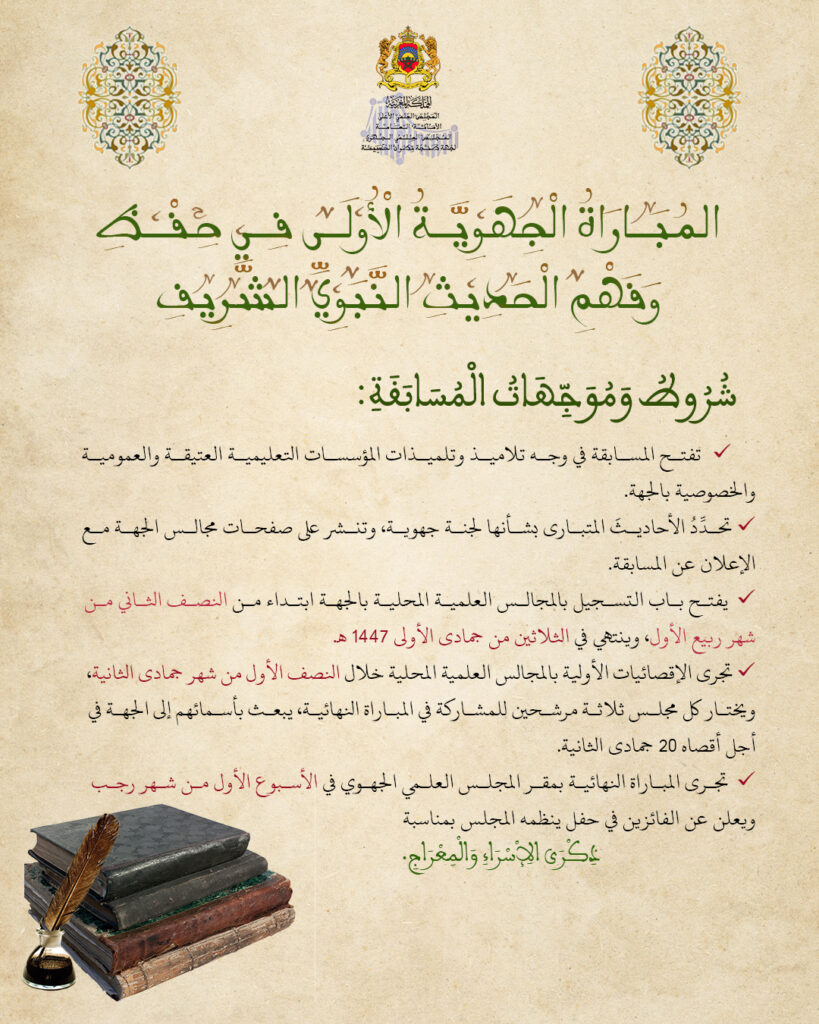 المملكة المغربية
المجلس العلمي الأعلى
الأمانة العامة
المجلس العلمي الجهوي
لجهة طنجة تطوان الحسيمة
المُبَارَاةُ الْجِهَوِيَّةُ الْأُولَى فِي حِفْظِ
وَفَهْمِ الْحَدِيثِ النَّبَوِيِّ الشَّرِيفِ
شُرُوطُ وَمُوَجِّهَاتُ الْمُسَابَقَةِ:
تفتح المسابقة في وجه تلاميذ وتلميذات المؤسسات التعليمية العتيقة والعمومية
والخصوصية بالجهة.
تحدِّدُ الأحاديثَ المتبارى بشأنها لجنة جهوية، وتنشر على صفحات مجالس الجهة مع
الإعلان عن المسابقة.
يفتح باب التسجيل بالمجالس العلمية المحلية بالجهة ابتداء من النصف الثاني من
شهر ربيع الأول، وينتهي في الثلاثين من جمادى الأولى 1447 هـ.
تجرى الإقصائيات الأولية بالمجالس العلمية المحلية خلال النصف الأول من شهر جمادى الثانية،
ويختار كل مجلس ثلاثة مرشحين للمشاركة في المباراة النهائية، يبعث بأسمائهم إلى الجهة في
أجل أقصاه 20 جمادى الثانية.
تجرى المباراة النهائية بمقر المجلس العلمي الجهوي في الأسبوع الأول من شهر رجب
ويعلن عن الفائزين في حفل ينظمه المجلس بمناسبة
ذِكْرَى الِاسْرَاءِ وَالْمِعْرَاجِ.